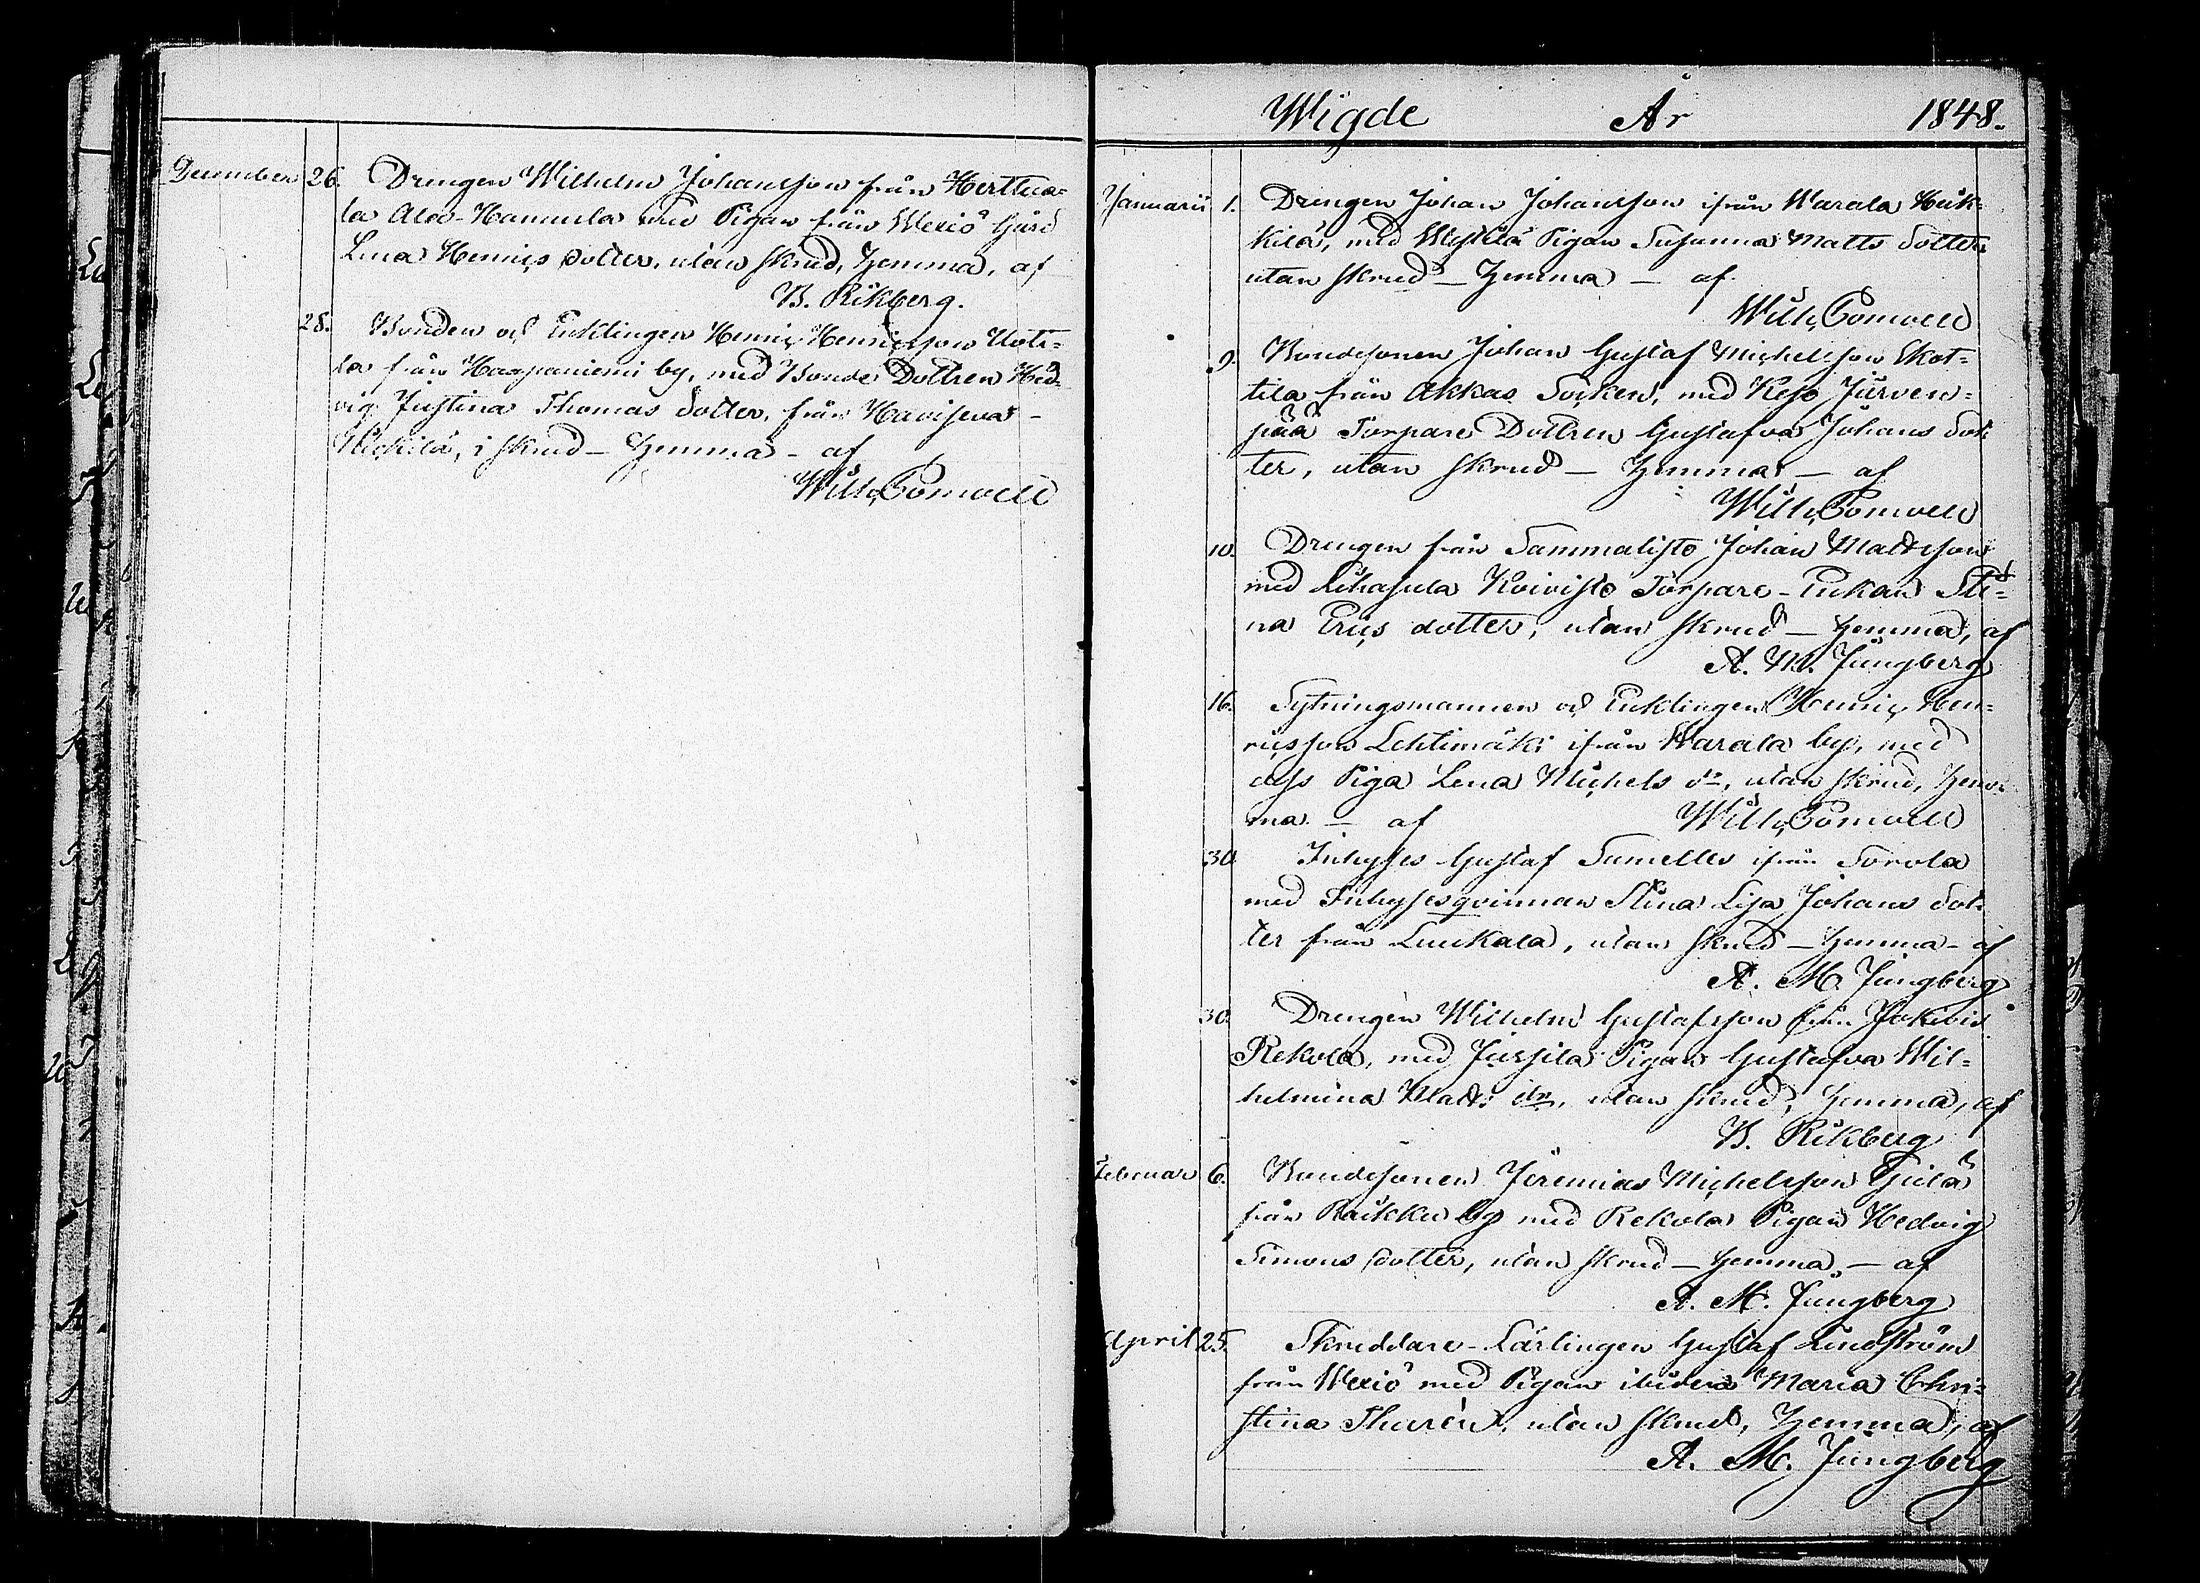 December 26. Drengen Wilhelm Johansson från Herttua=
la Ala-Hannula med Pigan från Wexiö Gård
Lena Henrics dotter, utan skrud, hemma, af
B. Rikberg.
28. Bonden och Enklingen Henric Henricsson Uoti=
la från Haapaniemi by, med Bonde Dottren Hed=
vig Justina Thomas dotter, från Havisevan-
Mickilä, i skrud – hemma – af
Wilh. Pomoell
Wigde År 1848.
Januarii 1. Drengen Johan Johansson ifrån Warala Huk=
kila, med Pigan Susanna Matts dotter
utan skrud – hemma – af
Wilh. Pomoell
9. Bondesonen Johan Gustaf Michelsson Skot=
tila från Akkas Socken, med Keso Järven=
pää Torpare Dottren Gustafva Johans dot
ter, utan skrud – hemma – af
Wilh. Pomoell
10. Drengen från Sammalisto Johan Mattsson
med Lihasula Koivisto Torpare-Enkan Sti=
na Erics dotter, utan skrud – hemma, af
A. M. Jungberg
16. Sytningsmannen och Enklingen Henric Hen=
ricsson Lehtimäki ifrån Warala by, med
dess Piga Lena Michels dr, utan skrud, hem=
ma – af Wilh. Pomoell
30. Inhyses Gustaf Sumelles ifrån Sorola
med Inhysesqvinnan Stina Lisa Johans dot
ter från Luukala, utan skrud – hemma – af
A. M. Jungberg
30. Drengen Wilhelm Gustafsson från Jokivis
Rekola, med Jussila Pigan Gustafva Wil=
helmina Matts dr, utan skrud, hemma, af
B. Rikberg
Februar 6. Bondesonen Jeremias Michelsson
från Raikku by med Rekola Pigan Hedvig
Simons dotter, utan skrud – hemma – af
A. M. Jungberg
April 25. Skreddare-Lärlingen Gustaf Lindström
från Wexiö med Pigan ibidem Maria Chri=
stina Thurén, utan skrud, hemma, af
A. M. Jungberg